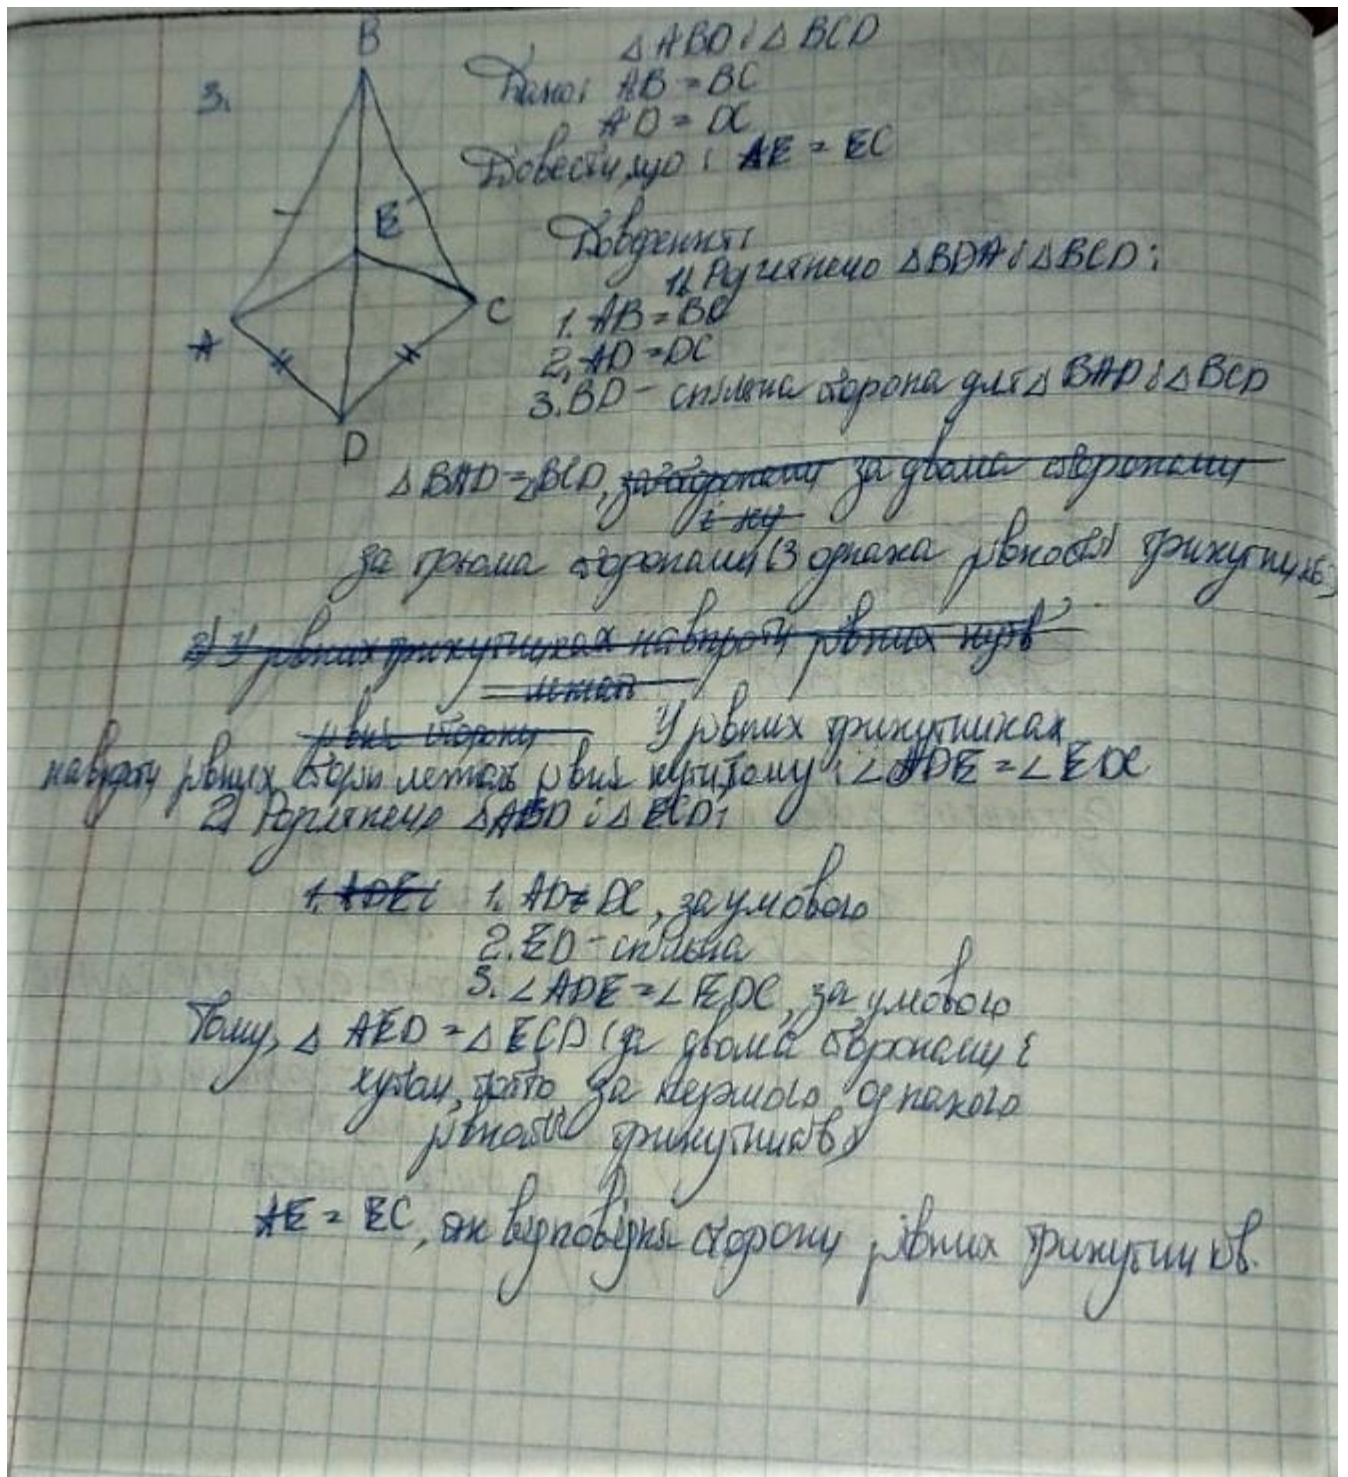 B
3.
△ABD і △BCD
Дано: AB = BC
AD = DC
Довести, що: AE = EC
E
A
C
D
Доведення:
1) Розглянемо △BDA і △BCD:
1. AB = BC
2. AD = DC
3. BD - спільна сторона для △BAD і △BCD
△BAD = △BCD, за сторонами за двома сторонами
і ку
за трьома сторонами (3 ознака рівності трикутників)
2) У рівних трикутниках навпроти рівних кутів
лежать
рівні сторони У рівних трикутниках
навпроти рівних сторін лежать рівні кути, тому: ∠ADE = ∠EDC
2) Розглянемо △AED і △ECD:
1. ADE: 1. AD = DC, за умовою
2. ED - спільна
3. ∠ADE = ∠EDC, за умовою
Тому, △AED = △ECD (за двома сторонами і
кутом, тобто за першою ознакою
рівності трикутників)
AE = EC, як відповідні сторони рівних трикутників.